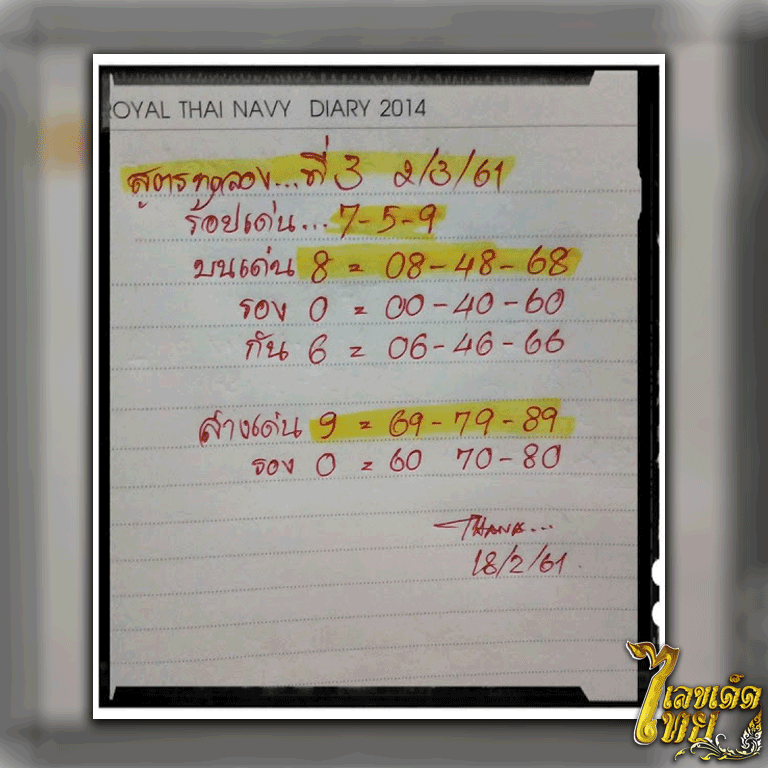 ROYAL THAI NAVY DIARY 2014
สูตรทดลอง...ที่ 3 2/3/61
ร้อยเด่น... 7-5-9
บนเด่น 8 = 08-48-68
รอง 0 = 00-40-60
กัน 6 = 06-46-66
ล่างเด่น 9 = 69-79-89
รอง 0 = 60 70-80
THANA...
18/2/61.
ไทย เลขเด็ด